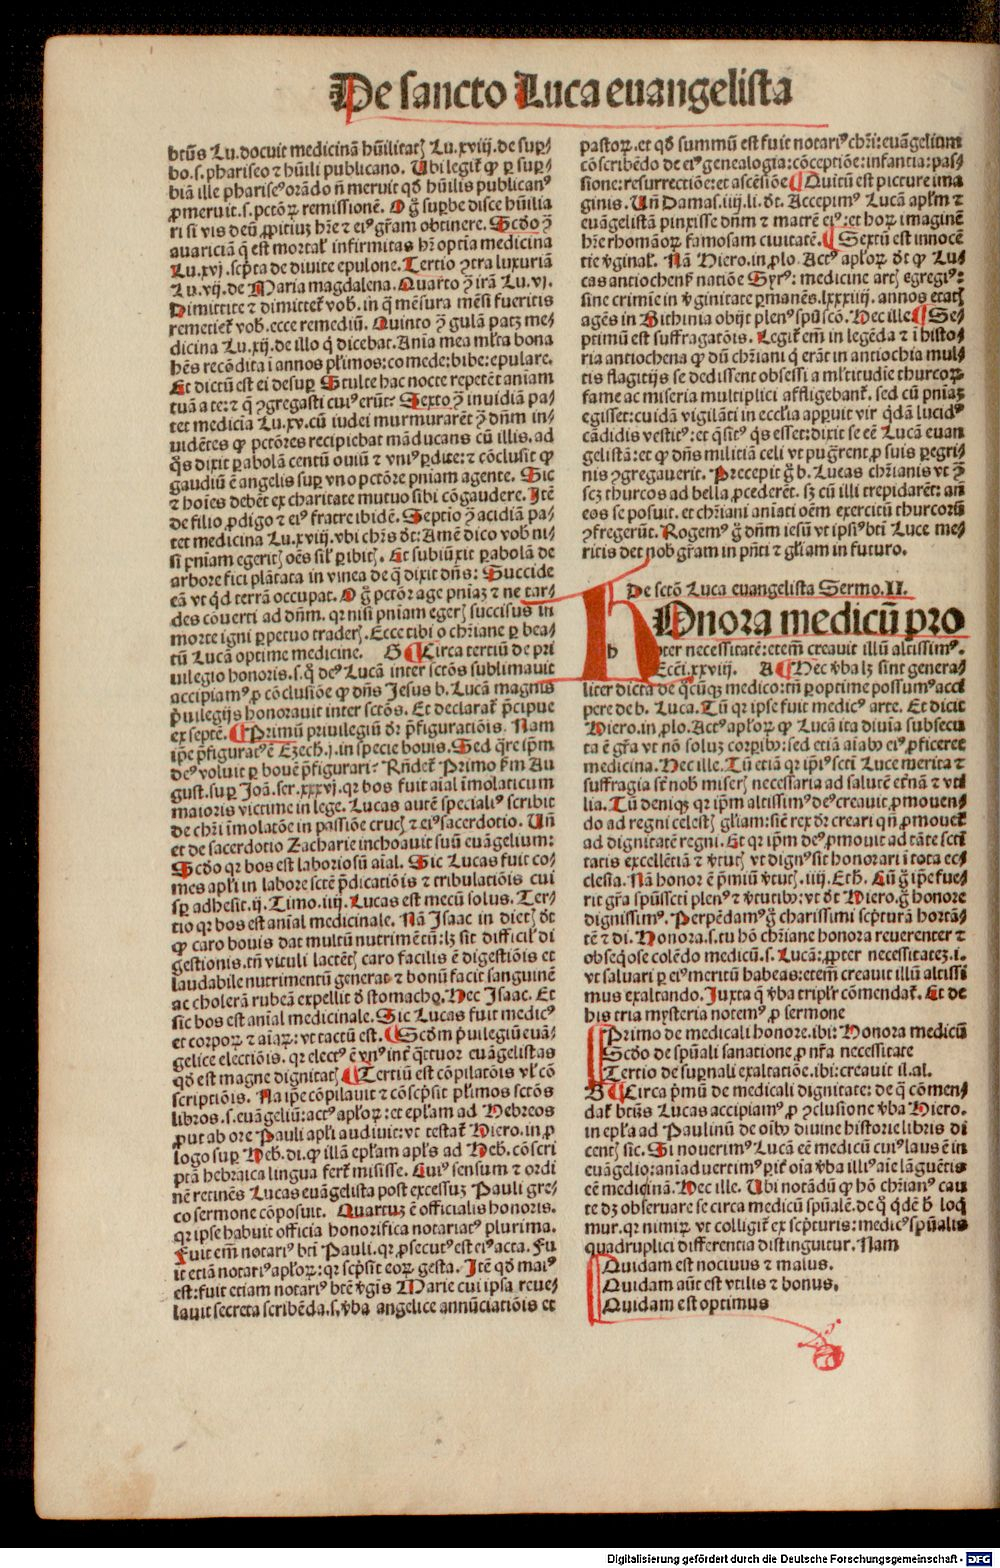 De sancto Luca euangelista
btũs Lu. docuit medicinã hũilitatꝭ Lu.xviij. de suꝑ⸗
bo.s. phariseo ⁊ hũili publicano. Ubi legit̃ ꝙ ꝑ suꝑ⸗
biã ille phariseꝰ orãdo nõ meruit qd̃ hũilis publicanꝰ
ꝓmeruit.s. pctõꝝ remissionẽ. O g̃ suꝑbe disce hũilia
ri si vis deũ ꝓpitiuꝫ hr̃e ⁊ eiꝰ gr̃am obtinere. Scd̃o ꝯ̃
auariciã q̃ est mortal̃ infirmitas hr̃ optĩa medicina
Lu.xvj. scp̃ta de diuite epulone. Tertio ꝯtra luxuriã
Lu.vij. de Maria magdalena. Quarto ꝯ̃ irã Lu.vj.
Dimittite ⁊ dimittet̃ vob̃. in q̃ mẽsura mẽsi fueritis
remetiet̃ vob̃. ecce remediũ. Quinto ꝯ̃ gulã patꝫ me⸗
dicina Lu.xij. de illo q̃ dicebat. Anĩa mea ml̃ta bona
hẽs recõdita ĩ annos pl̃imos: comede: bibe: epulare.
Et dictũ est ei desuꝑ Stulte hac nocte repetẽt anĩam
tuã a te: ⁊ q̃ ꝯgregasti cuiꝰ erũt. Sexto ꝯ̃ inuidiã pa⸗
tet medicĩa Lu.xv. cũ iudei murmurarẽt ꝯ̃ dñm in⸗
uidẽtes ꝙ pctõres recipiebat mãducans cũ illis. ad
q̃s dixit ꝑabolã centũ ouiũ ⁊ vniꝰ ꝑdite: ⁊ cõclusit ꝙ
gaudiũ ẽ angelis suꝑ vno pctõre pniam agente. Sic
⁊ hoĩes debẽt ex charitate mutuo sibi cõgaudere. Itẽ
de filio ꝓdigo ⁊ eiꝰ fratre ibidẽ. Septĩo ꝯ̃ acidiã pa⸗
tet medicina Lu.xviij. vbi chr̃s dt̃: Amẽ dico vob̃ ni⸗
si pñiam egeritꝭ oẽs sil̃ ꝑibitꝭ. Et subiũxit ꝑabolã de
arbore fici plãtata in vinea de q̃ dixit dñs: Succide
eã vt qd̃ terrã occupat. O g̃ pctõr age pniaꝫ ⁊ ne tar⸗
des cõuerti ad dñm. qꝛ nisi pniam egerꝭ succisus in
morte igni ꝑpetuo traderꝭ. Ecce tibi o chr̃iane ꝑ bea⸗
tũ Lucã optime medicine. G ¶ Circa tertiũ de pri
uilegio honoris.s. q̃ deꝰ Lucã inter sctõs sublimauit
accipiamꝰ ꝓ cõclusiõe ꝙ dñs Jesus b. Lucã magnis
p̃uilegijs honorauit inter sctõs. Et declarat̃ p̃cipue
ex septẽ. ¶ Primũ priuilegiũ dr̃ p̃figuratiõis. Nam
ip̃e p̃figuratꝰ ẽ Ezech.j. in specie bouis. Sed q̃re ip̃m
deꝰ voluit ꝑ bouẽ p̃figurari? Rñdet̃ Primo ẜm Au
gust. suꝑ Joã. ser.xxxvj. qꝛ bos fuit aĩal ĩmolaticum
maioris victime in lege. Lucas autẽ speciali⁹ scribit
de chr̃i ĩmolatõe in passiõe crucꝭ ⁊ eiꝰ sacerdotio. Uñ
et de sacerdotio Zacharie inchoauit suũ euãgelium:
Scd̃o qꝛ bos est laboriosũ aĩal. Sic Lucas fuit co⸗
mes apl̃i in labore sctẽ p̃dicatiõis ⁊ tribulatiõis cui
sꝑ adhesit. ij. Timo.iiij. Lucas est mecũ solus. Ter⸗
tio qꝛ bos est anĩal medicinale. Nã Isaac in dietꝭ dt̃
ꝙ caro bouis dat multũ nutrimẽtũ: lꝫ sit difficil̃ di
gestionis. tñ vituli lactẽtꝭ caro facilis ẽ digestiõis et
laudabile nutrimentũ generat ⁊ bonũ facit sanguinẽ
ac cholerã rubeã expellit d̃ stomacho. Hec Isaac. Et
sic bos est anĩal medicinale. Sic Lucas fuit medicꝰ
et corpoꝝ ⁊ aĩaꝝ: vt tactũ est. ¶ Scd̃m p̃uilegiũ euã⸗
gelice electiõis. qꝛ electꝰ ẽ vnꝰ int̃ q̃ttuor euãgelistas
qd̃ est magne dignitatꝭ ¶ Tertiũ est cõpilatõis vl̃ cõ
scriptiõis. Na ip̃e cõpilauit ⁊ cõscp̃sit pl̃imos sctõs
libros.s. euãgeliũ: actꝰ apl̃oꝝ: et epl̃am ad Hebreos
ꝓut ab ore Pauli apl̃i audiuit: vt testat̃ Hiero. in ꝓ
logo suꝑ Heb. di. ꝙ illã epl̃am apl̃s ad Heb. cõscri
ptã hebraica lingua fert̃ misisse. Cuiꝰ sensum ⁊ ordi
nẽ retinẽs Lucas euãgelista post excessuꝫ Pauli gre⸗
co sermone cõposuit. Quartuꝫ ẽ officialis honoris.
qꝛ ipse habuit officia honorifica notariatꝰ plurima.
Fuit em̃ notariꝰ bti Pauli. qꝛ ꝓsecutꝰ est eiꝰ acta. Fu
it etiã notariꝰ apl̃oꝝ: qꝛ scp̃sit eoꝝ gesta. Itẽ qd̃ maiꝰ
est: fuit etiam notariꝰ btẽ v̓gĩs Marie cui ipsa reue⸗
lauit secreta scribẽda.s. v̓ba angelice annũciatiõis et
pastoꝝ. et qd̃ summũ est fuit notariꝰ chr̃i: euãgelium
cõscribẽdo de eiꝰ genealogia: cõceptiõe: infantia: pas⸗
sione: resurrectiõe: et ascẽsiõe ¶ Quitũ est picture ima
ginis. Uñ Damas. iiij. li. dt̃. Accepimꝰ Lucã apl̃m ⁊
euãgelistã pinxisse dñm ⁊ matrẽ eiꝰ: et hoꝝ imaginẽ
hr̃e rhomãoꝝ famosam ciuitatẽ. ¶ Sextũ est innocẽ
tie v̓ginal̃. Nã Hiero. in ꝓlo. Actꝰ apl̃oꝝ dt̃ ꝙ Lu⸗
cas antiochenꝰ natiõe Syrꝰ: medicine artꝭ egregiꝰ:
sine crimĩe in v̓ginitate ꝑmanẽs. lxxxiiij. annos etatꝭ
agẽs in Bithinia obijt plenꝰ spũ sctõ. Hec ille ¶ Se⸗
ptimũ est suffragatõis. Legit̃ em̃ in legẽda ⁊ ĩ histo⸗
ria antiochena ꝙ dũ chr̃iani q̃ erãt in antiochia mul⸗
tis flagitijs se dedissent obsessi a ml̃titudĩe thurcoꝝ
fame ac miseria multiplici affligebant̃. sed cũ pniaꝫ
egisset: cuidã vigilãti in eccl̃ia apꝑuit vir q̃dã lucidꝰ
cãdidis vestitꝰ: et q̃sitꝰ q̃s esset: dixit se eẽ Lucã euan
gelistã: et ꝙ dñs militiã celi vt pug̃rent ꝓ suis ꝑegri⸗
nis ꝯgregauerit. Precepit g̃ b. Lucas chr̃ianis vt ꝯ̃
scꝫ thurcos ad bella ꝓcederẽt. sꝫ cũ illi trepidarẽt: an
eos se posuit. et chr̃iani aniati oẽm exercitũ thurcorũ
ꝯfregerũt. Rogemꝰ g̃ dñm iesũ vt ipsiꝰ bti Luce me⸗
ritis det nob̃ gr̃am in pñti ⁊ gl̃iam in futuro.
De sctõ Luca euangelista Sermo.II.
HOnora medicũ pro
h pter necessitatẽ: etem̃ creauit illũ altissimꝰ.
Eccl̃i.xxviij. A ¶ Hec v̓ba lꝫ sint genera⸗
liter dicta de q̃cũqꝫ medico: tñ ꝑoptime possumꝰ acci
pere de b. Luca. Tũ qꝛ ipse fuit medicꝰ arte. Et dicit
Hiero. in ꝓlo. Actꝰ apl̃oꝝ ꝙ Lucã ita diuĩa subsecu
ta ẽ gr̃a vt nõ soluꝫ corꝑibꝰ: sed etiã aĩabꝰ eiꝰ ꝓficeret
medicina. Hec ille. Tũ etiã qꝛ ip̃iꝰ sctĩ Luce merita ⁊
suffragia st̃ nob̃ miserꝭ necessaria ad salutẽ etr̃nã ⁊ vti
lia. Tũ deniqꝫ qꝛ ip̃m altissimꝰ deꝰ creauit ꝓmouen⸗
do ad regni celestꝭ gl̃iam: sic̃ rex dr̃ creari qñ ꝓmouet̃
ad dignitatẽ regni. Et qꝛ ip̃m deꝰ ꝓmouit ad tãte scti
tatis excellẽtiã ⁊ v̓tutꝭ vt dignꝰ sit honorari ĩ tota ec⸗
clesia. Nã honor ẽ p̃miũ v̓tutꝭ. iiij. Eth. Cũ g̃ ip̃e fue⸗
rit gr̃a spũssctĩ plenꝰ ⁊ v̓tutibꝰ: vt dt̃ Hiero. g̃ honore
dignissimꝰ. Perpẽdamꝰ g̃ charissimi scp̃turã hortã⸗
tẽ ⁊ di. Honora.s. tu hõ chr̃iane honora reuerenter ⁊
obseq̃ose colẽdo medicũ.s. Lucã: ꝓpter necessitateꝫ.i.
vt saluari ꝑ eiꝰ meritũ habeas: etem̃ creauit illũ altissi
mus exaltando. Juxta q̃ v̓ba tripl̃r cõmendat̃. Et de
his tria mysteria notemꝰ ꝓ sermone
Primo de medicali honore. ibi: Honora medicũ
Scd̃o de spũali sanatione ꝓ nr̃a necessitate
Tertio de supnali exaltatiõe. ibi: creauit il. al.
B ¶ Circa p̃mũ de medicali dignitate: de q̃ cõmen⸗
dat̃ btũs Lucas accipiamꝰ ꝓ ꝯclusione v̓ba Hiero.
in epl̃a ad Paulinũ de oĩbꝰ diuine historie libris di
centꝭ sic. Si nouerimꝰ Lucã eẽ medicũ cuiꝰ laus ẽ in
euãgelio: anĩaduertimꝰ ꝑit̃ oĩa v̓ba illiꝰ aĩe lãguẽtis
eẽ medicinã. Hec ille. Ubi notãdũ ꝙ hõ chr̃ianꝰ cau
te dꝫ obseruare se circa medicũ spũalẽ. de q̃ q̃dẽ h̃ loq̃
mur. qꝛ nimiꝝ vt colligit̃ ex scp̃turis: medicꝰ spũalis
quadruplici differentia distinguitur. Nam
Quidam est nociuus ⁊ malus.
Quidam aũt est vtilis ⁊ bonus.
Quidam est optimus
Digitalisierung gefördert durch die Deutsche Forschungsgemeinschaft - DFG